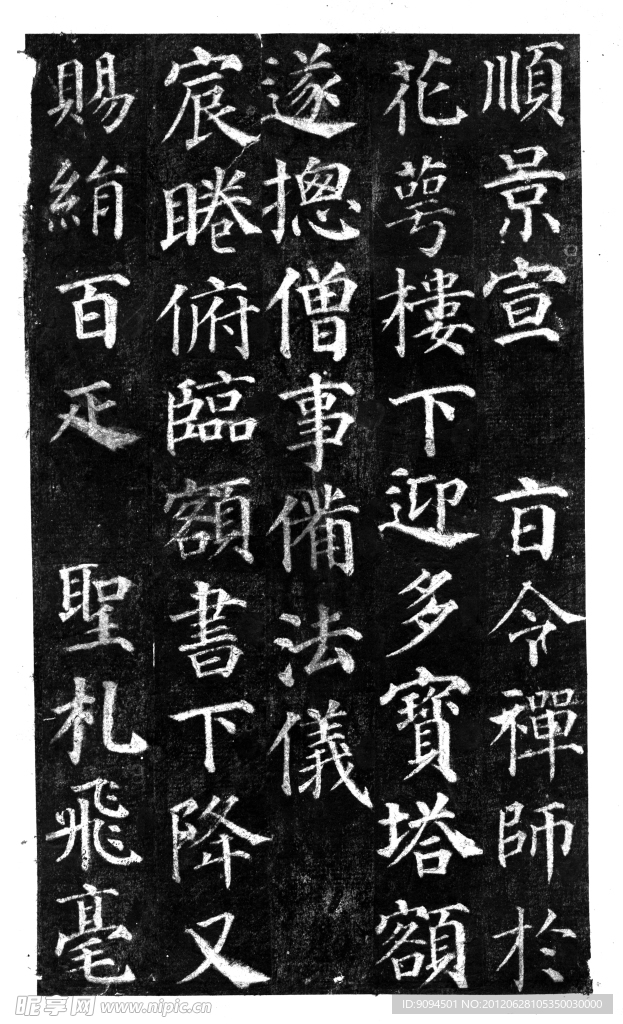 順景宣 㫖令禪師於
花萼樓下迎多寶塔額
遂揔僧事俻法儀
宸睠俯臨額書下降又
賜絹百疋 聖札飛毫
昵享网 www.nipic.cn
ID:9094501 NO:20120628105350030000